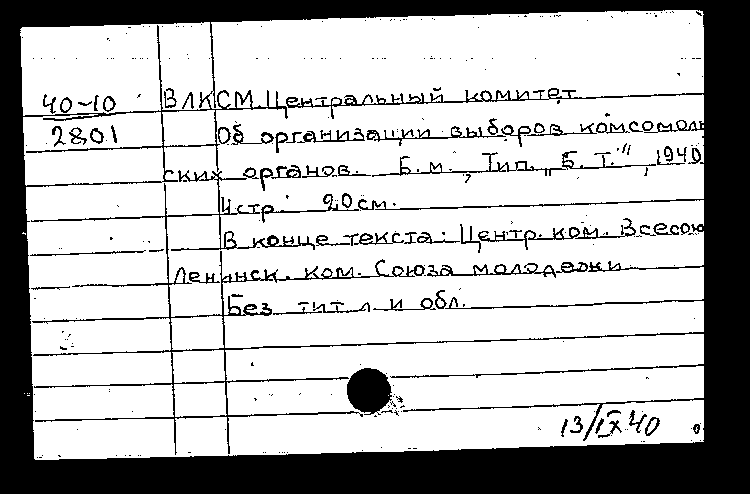 40-10 ВЛКСМ. Центральный комитет
2801 Об организации выборов комсомоль
ских органов. Б.м., Тип. „Б. Т.", 1940
4 стр. 20 см.
В конце текста: Центр. ком. Всесою
Ленинск. ком. Союза молодежи
Без тит л. и обл.
13/IX 40